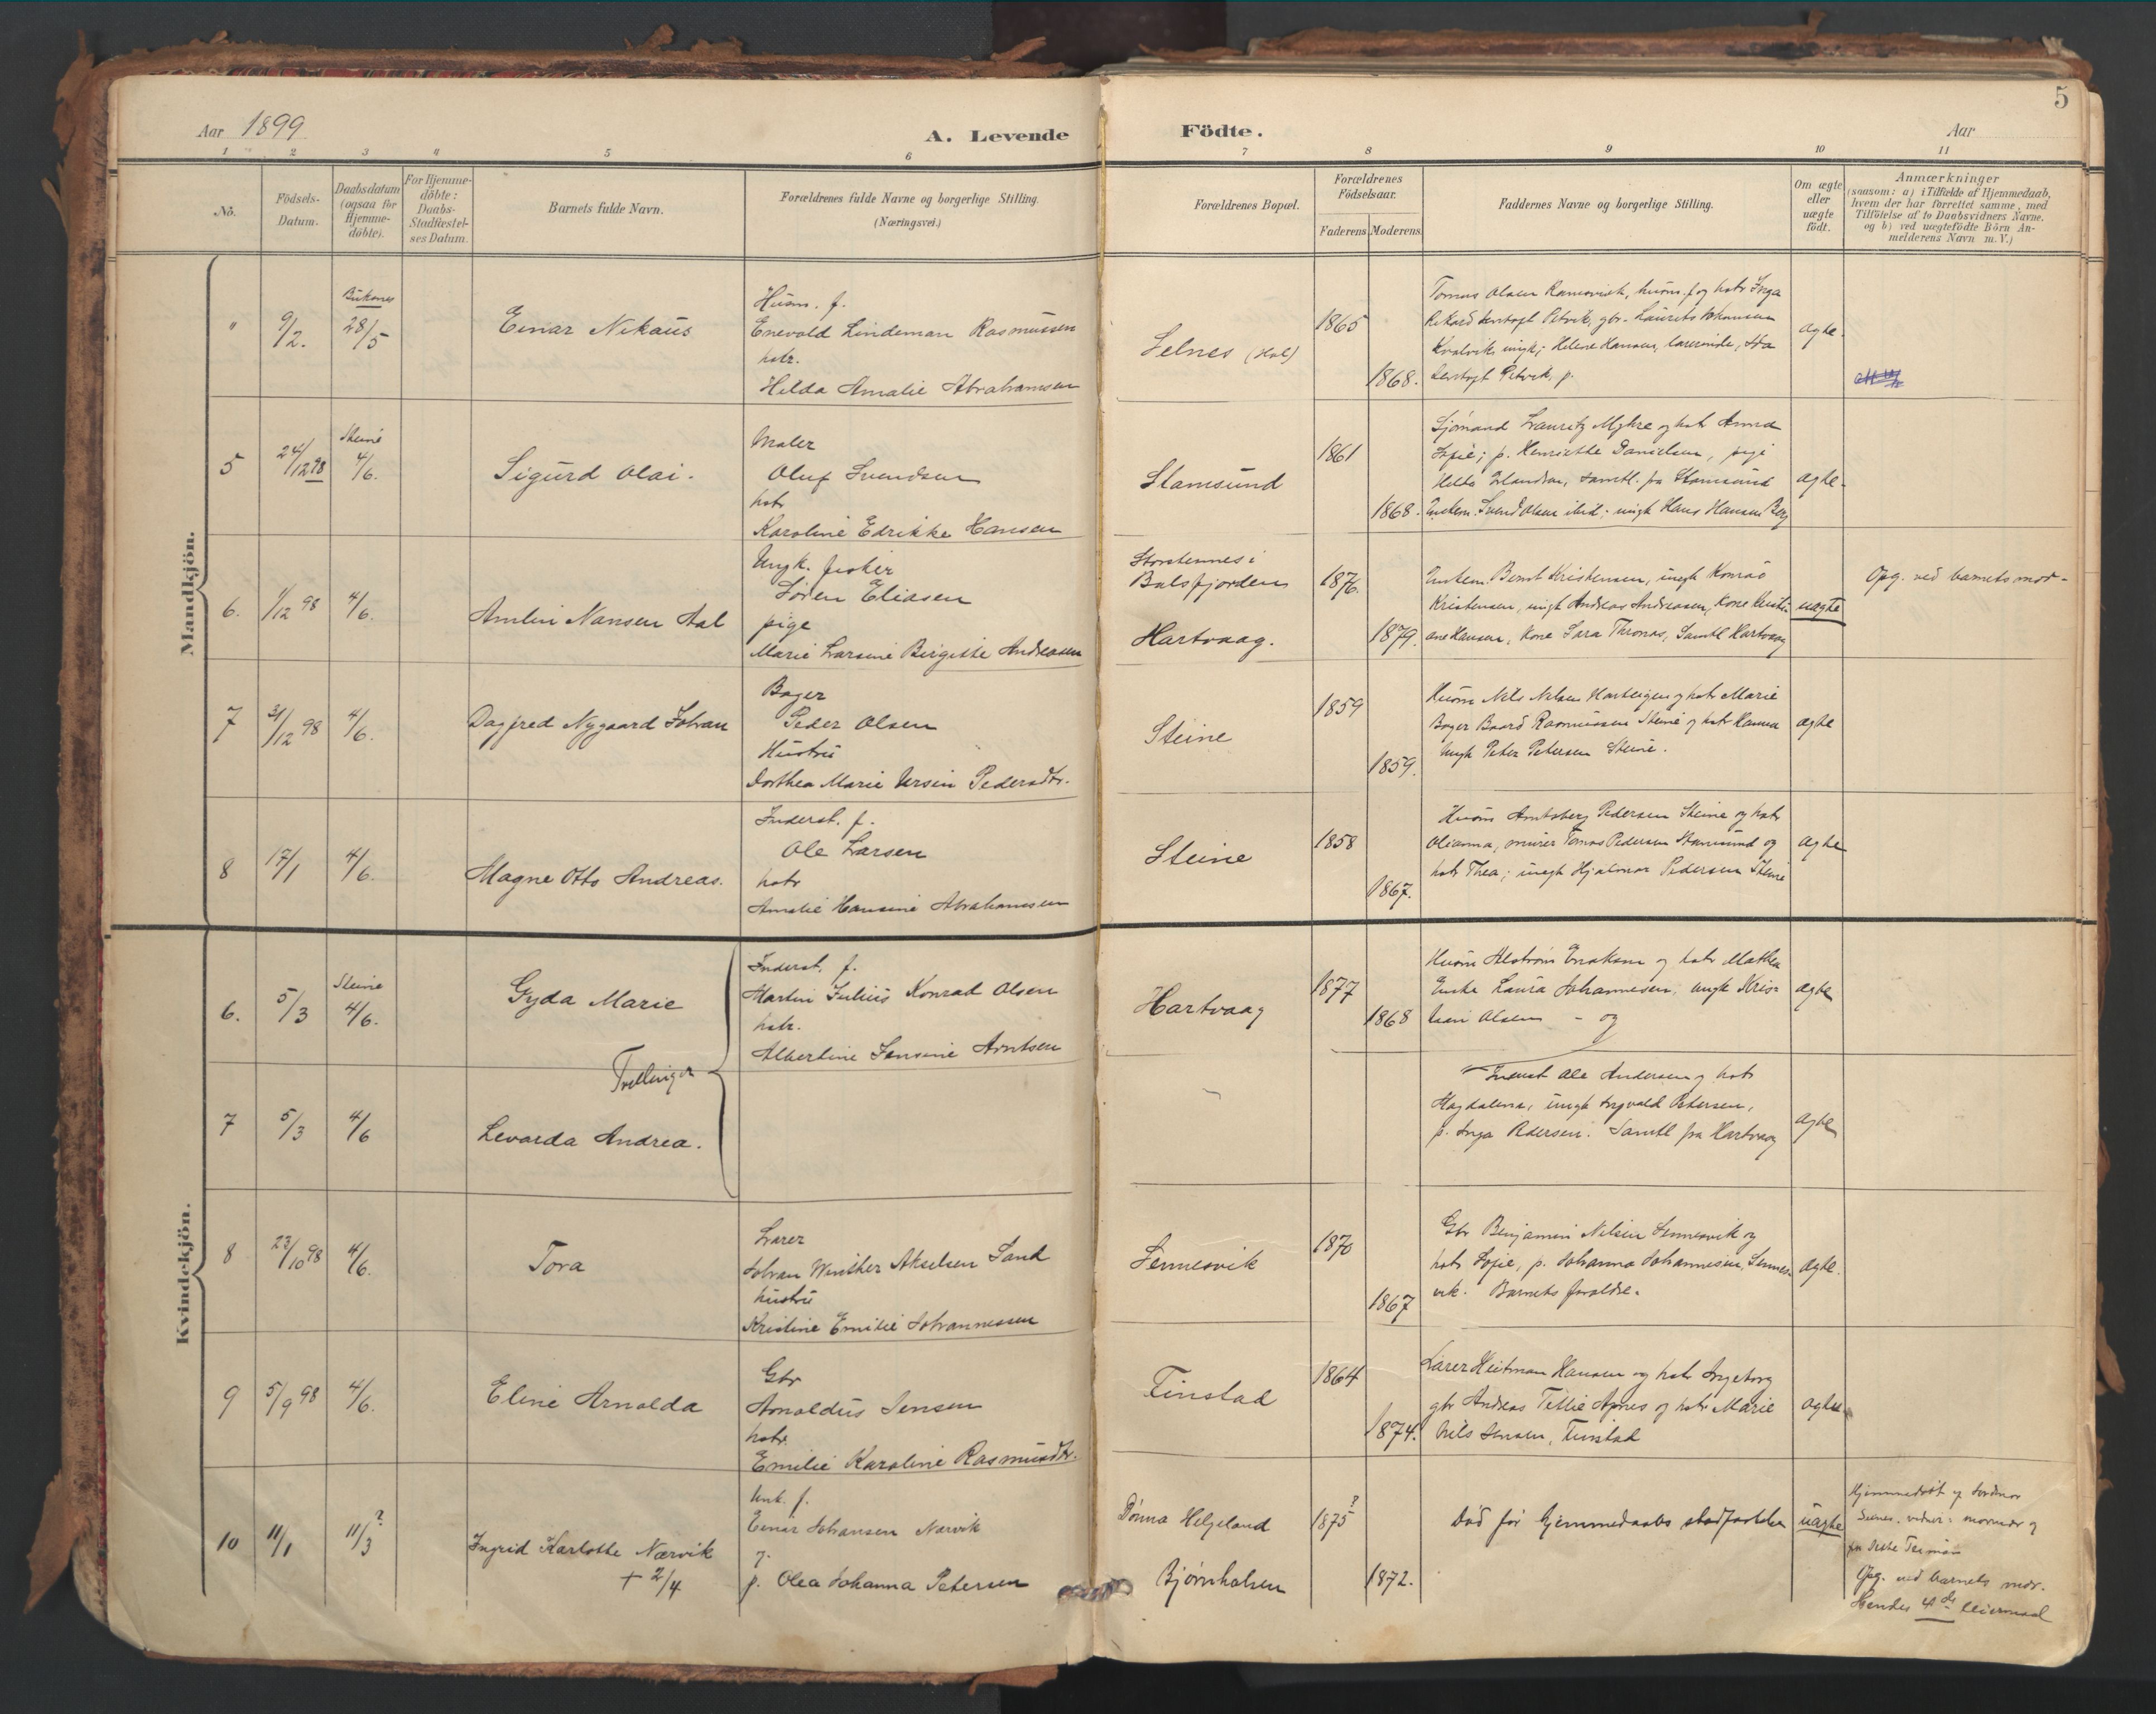 5
Aar 1899
A. Levende Födte.
Aar
1 2 3 4 5 6 7 8 9 10 11
No.
Födsels-
Datum.
Daabsdatum
(ogsaa for
Hjemme-
döbte).
For Hjemme-
döbte:
Daabs-
Stadfæstel-
ses Datum.
Barnets fulde Navn.
Forældrenes fulde Navne og borgerlige Stilling.
(Næringsvei.)
Forældrenes Bopæl.
Forældrenes
Födselsaar.
Faderens.
Moderens.
Faddernes Navne og borgerlige Stilling.
Om ægte
eller
uægte
födt.
Anmærkninger
(saasom: a) i Tilfælde af Hjemmedaab,
hvem der har forrettet samme, med
Tilföielse af to Daabsvidners Navne.
og b) ved uægtefödte Börn An-
melderens Navn m. V.)
Mandkjön.
"
9/2.
28/5
Einar Nikaus
Husm. f.
Enevold Lindeman Rasmussen
hstr.
Hilda Amalie Abrahamsen
Selnes (Hol)
1865
1868.
Tomas Olsen Ramsvik, husm. f og hstr Inga
Rikard Petvik, gbr. Laurits Johansen
Kvalvik, ungk; Helene Hansen, lærerinde,
Petvik, p.
ægte.
5
24/12 98
Steine
4/6.
Sigurd Olai.
Maler
Oluf Svendsen
hstr
Karoline Edrikke Hansen
Stamsund
1861
1868.
Sjömand Lauritz Myhre og hstr Anna
Sofie; p. Henriette Danielsen, pige
Hilda Erlandsen, samtl. fra Stamsund
Enkem. Svend Olsen ibid; ungk Hans Hansen Berg
ægte.
6.
1/12 98
4/6.
Amlin Nansen Aal
Ungk. fisker
Sören Eliasen
pige
Marie Larsine Birgitte Andreasen
Storstennes i
Balsfjorden
Hartvaag.
1876.
1879.
Enkem. Bernt Kristensen, ungk Konrad
Kristensen, ungk Andreas Andreasen, Kone Kristi-
ane Hansen, Kone Sara Thronæs, Samtl Hartvaag
uægte
Opg. ved barnets mor-
7
31/12 98
4/6.
Dagfred Nygaard Johan
Bager
Peder Olsen
Hustru
Dorthea Marie Ursin Pedersdtr.
Steine
1859
1859.
Husm Nils Nilsen og hstr Marie
Bager Baard Rasmussen Steine og hstr Hanna
Ungk Peter Petersen Steine.
ægte
8
17/1
4/6.
Magne Otto Andreas.
Inderst. f.
Ole Larsen
hstr
Amalie Hansine Abrahamsen
Steine
1858
1867.
Husm Arntsberg Pedersen Steine og hstr
Olianna, murer Tomas Pedersen Stamsund og
hstr Thea; ungk Hjalmar Pedersen Steine
ægte
Kvindekjön.
6.
5/3
Steine
4/6.
Gyda Marie
Inderst. f.
Martin Julius Konrad Olsen
hstr.
Albertine Jensine Arntsen
Hartvaag
1877
1868
Husm og hstr Mathea
Enke Laura Johannesen, ungk Kris-
tian Olsen - og
ægte
Tvillinger
7
5/3
4/6
Levarda Andrea.
Inderst Ole Andersen og hstr
Magdalena, ungk Ingvald Petersen,
p. Inga Pedersen. Samtl fra Hartvaag
ægte
8
23/10 98
4/6.
Tora
Lærer
Johan Winther Akselsen Sand
hustru
Kristine Emilie Johannessen
Sennesvik
1870
1867
Gbr Benjamin Nilsen Sennesvik og
hstr Sofie, p. Johanna Johannesen, Sennes-
vik. Barnets forældre.
ægte.
9
5/9 98
4/6.
Eline Arnolda
Gbr
Arnoldus Jensen
hstr.
Emilie Karoline Rasmusdtr.
Finstad
1864
1874.
Lærer Heitman Hansen og hstr Ingeborg
gbr Andreas Tillie Apnes og hstr Marie
Nils Jensen, Finstad
ægte
10
11/1
11/3 ?
Ingrid Karlotte Nærvik
+ 2/4
Unk. f.
Einar Johansen Narvik
og
p. Olea Johanna Petersen
Dönna Helgeland
Bjørnhalsen
1875 ?
1872.
Död för hjemmedaabs stadfæstelse
uægte
Hjemmedöbt af Jordmor
vidner: mormor og
Opg. ved barnets mor.
Hendes 4de leiermaal